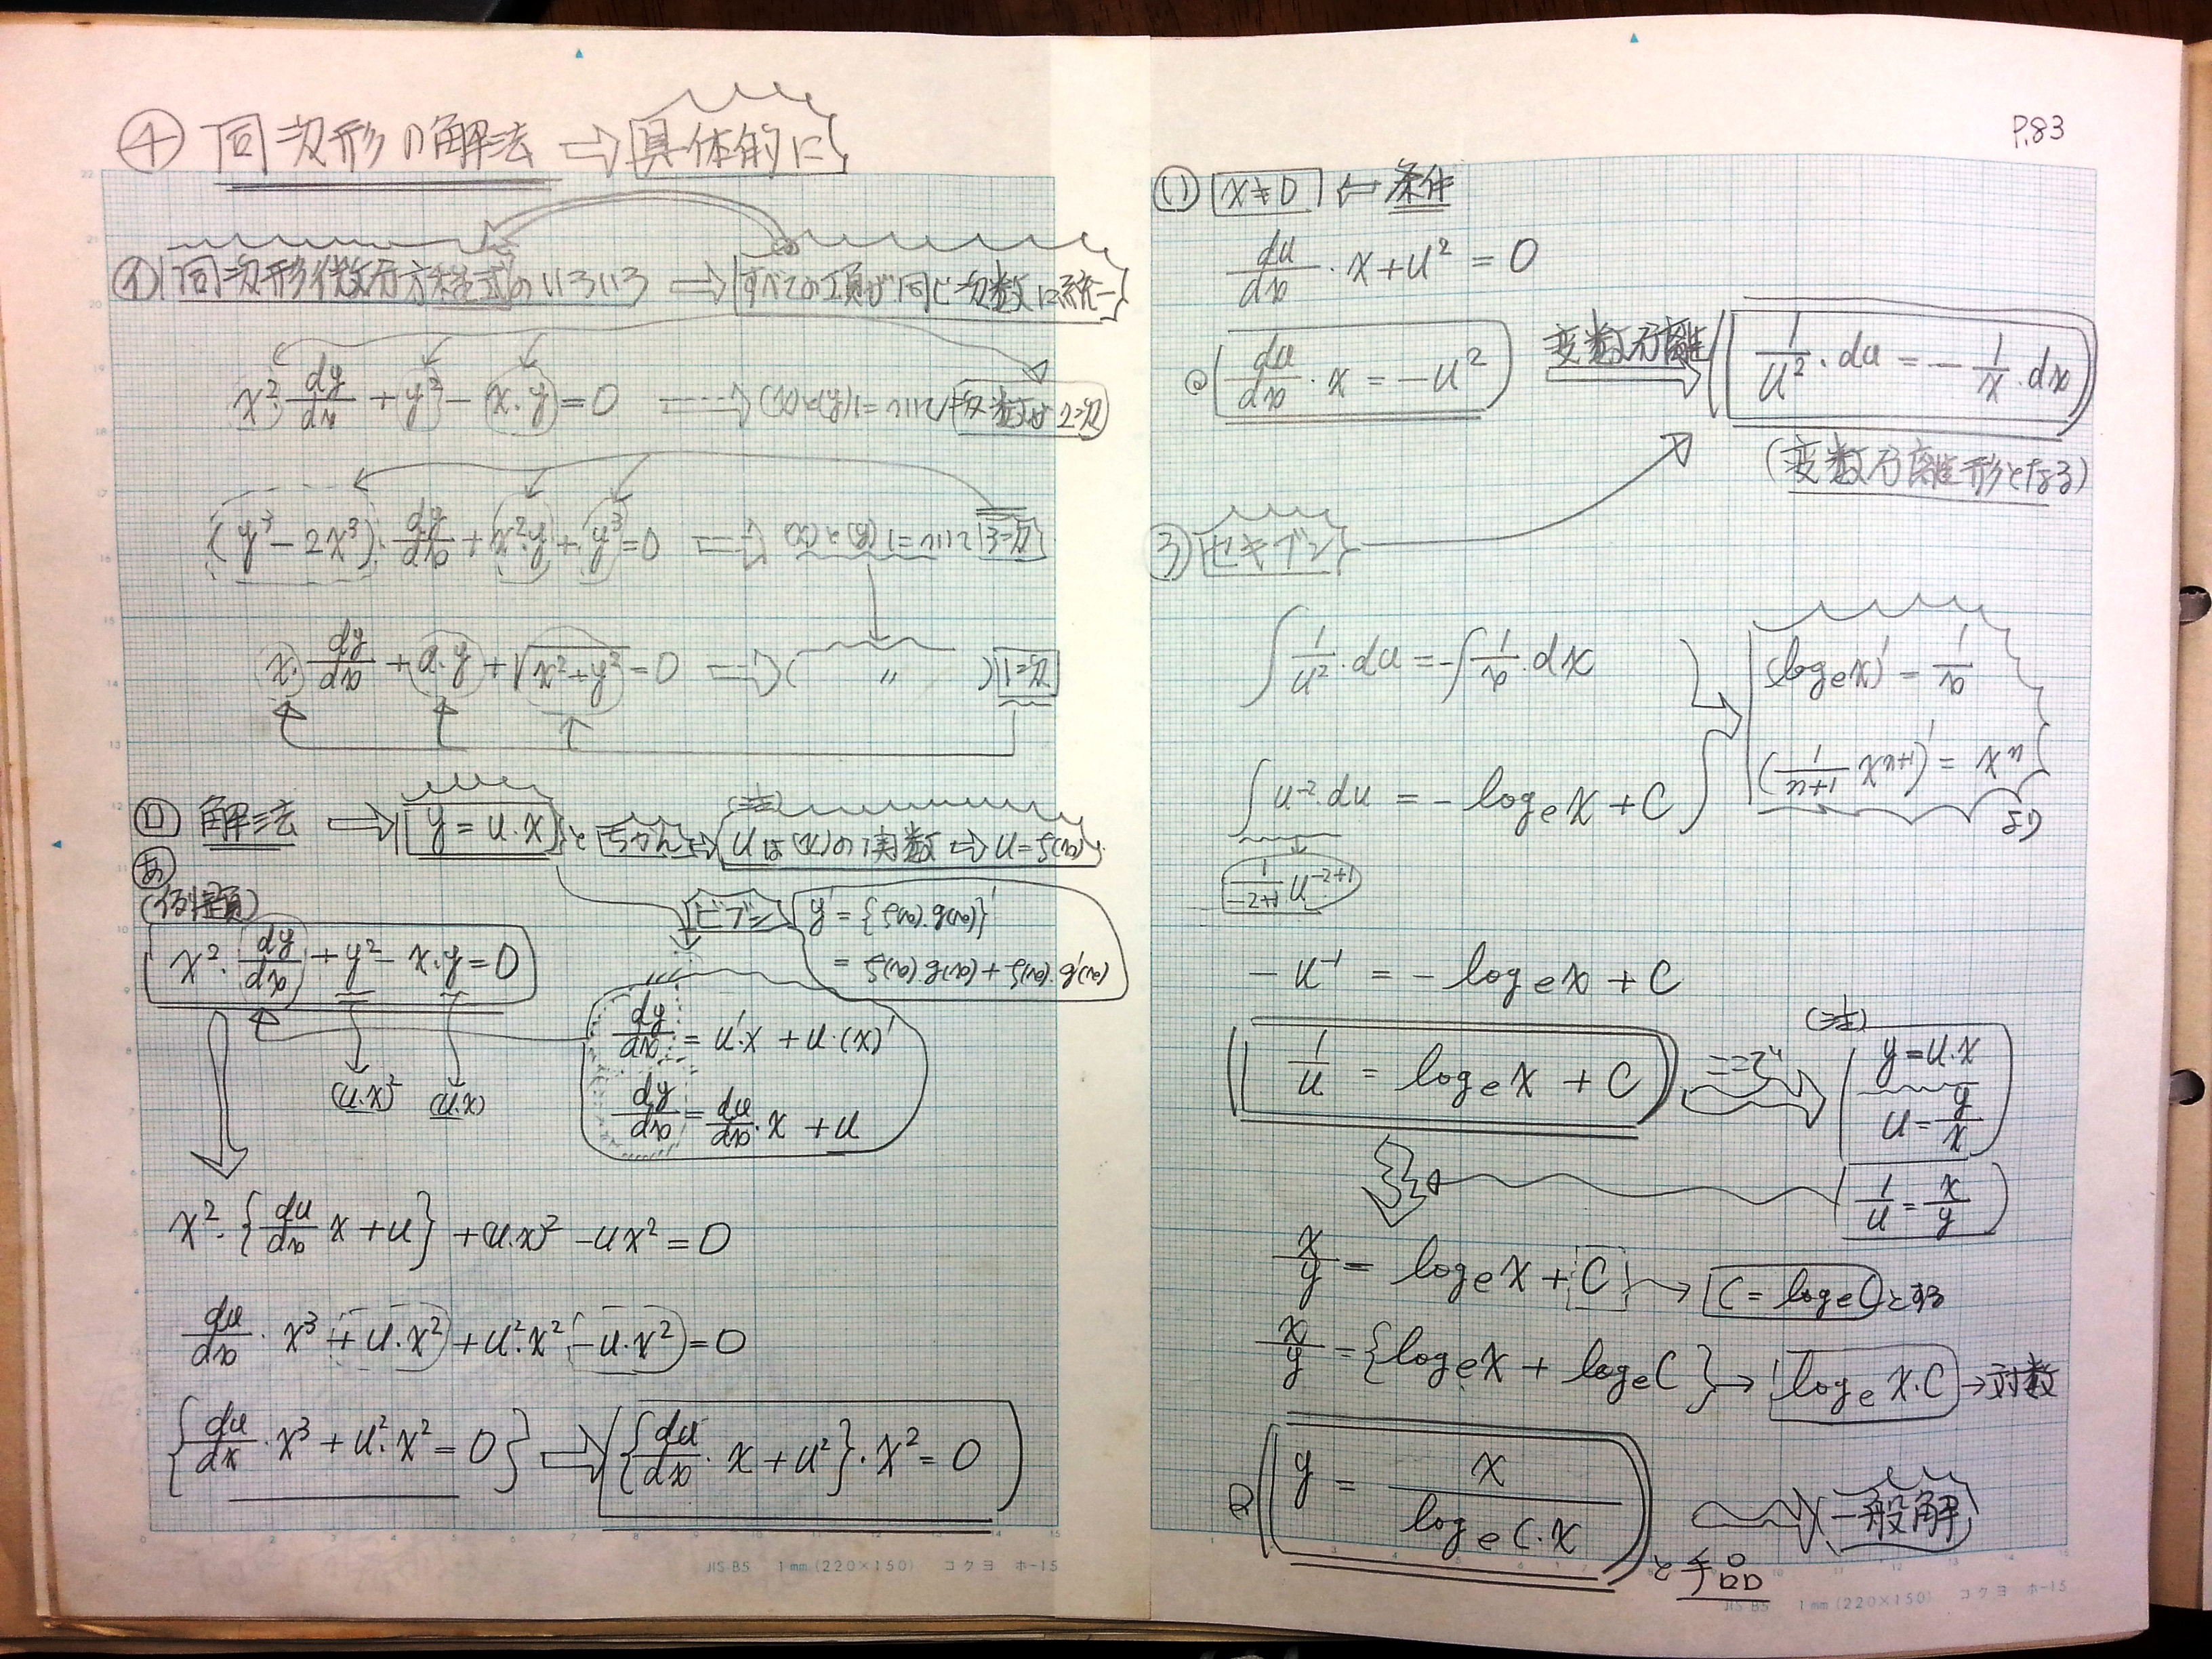 ④ 同次形の解法 ⇒ 具体的に
㋑ 同次形微分方程式のいろいろ ⇒ すべての項が同じ次数に統一
x²・dy/dx + y² - x・y = 0 ⇢ (x)と(y)について 次数が2次
(y³ - 2x³)・dy/dx + x²・y + y³ = 0 ⇒ (x)と(y)について 3次
x・dy/dx + a・y + √(x²+y²) = 0 ⇒ ( 〃 ) 1次
㋺ 解法 ⇒ y = u・x と ちかん → (注) uは(x)の関数 ⇒ u = f(x)
あ
(例題)
x²・dy/dx + y² - x・y = 0
(u・x)² (u・x)
ビブン y' = {f(x)・g(x)}'
= f'(x)・g(x) + f(x)・g'(x)
dy/dx = u'・x + u・(x)'
dy/dx = du/dx・x + u
x²・{du/dx x + u} + (u・x)² - ux² = 0
du/dx・x³ + u・x² + u²・x² - u・x² = 0
{du/dx・x³ + u²・x² = 0} ⇒ {du/dx・x + u²}・x² = 0
P.83
(1) x ≠ 0 ⇐ 条件
du/dx・x + u² = 0
du/dx・x = -u² 変数分離 ⇒ 1/u²・du = -1/x・dx
(変数分離形となる)
③ セキブン
∫1/u²・du = -∫1/x・dx
(logₑx)' = 1/x
(1/(n+1) xⁿ⁺¹)' = xⁿ
より
∫u⁻²・du = -logₑx + C
1/(-2+1) u⁻²⁺¹
-u⁻¹ = -logₑx + C
1/u = logₑx + C ここで (注)
y = u・x
u = y/x
1/u = x/y
x/y = logₑx + C → C = logₑC とする
x/y = {logₑx + logₑC} → logₑx・C → 対数
y = x/(logₑC・x) と手品 ⇒ 一般解
JIS B5 1mm (220×150) コクヨ ホ-15
JIS B5 1mm (220×150) コクヨ ホ-15